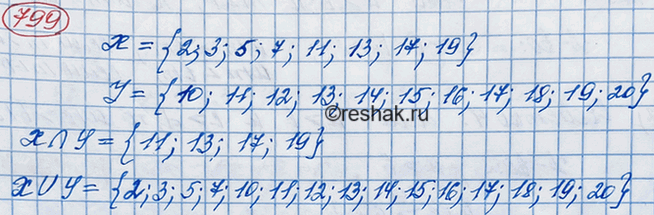 799
X = {2; 3; 5; 7; 11; 13; 17; 19}
Y = {10; 11; 12; 13; 14; 15; 16; 17; 18; 19; 20}
©reshak.ru
X∩Y = {11; 13; 17; 19}
X∪Y = {2; 3; 5; 7; 10; 11; 12; 13; 14; 15; 16; 17; 18; 19; 20}